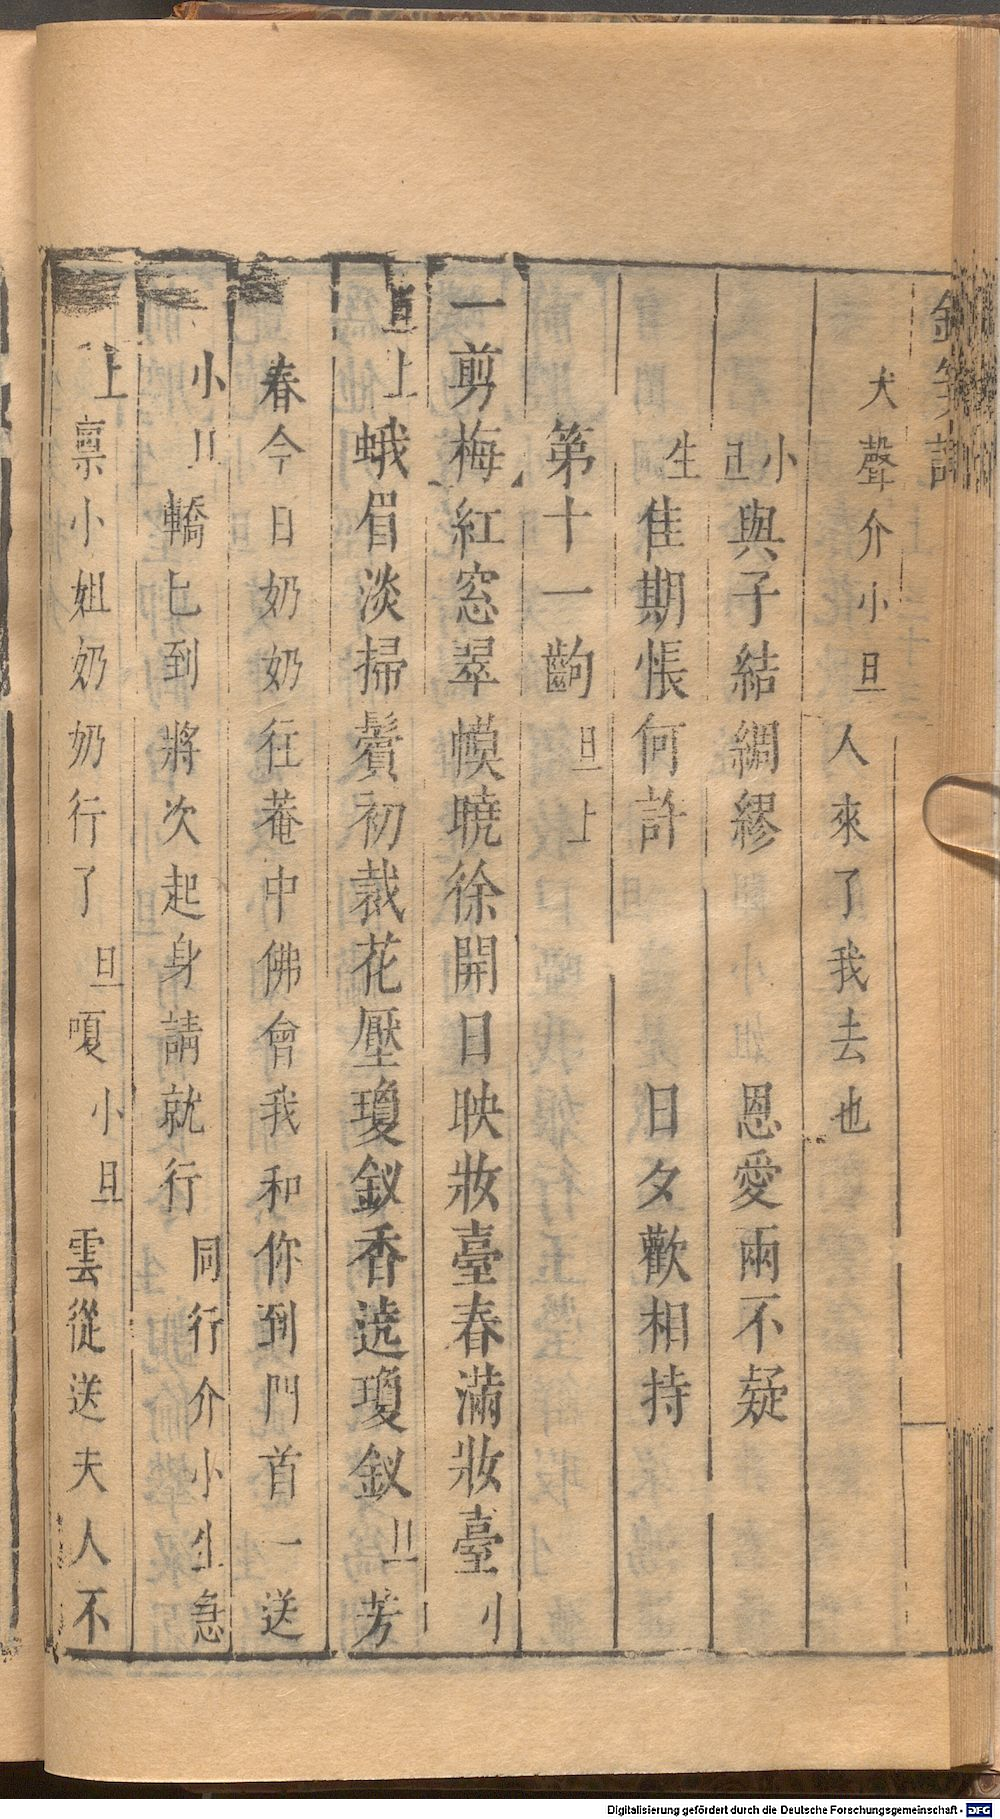 犬聲介小旦人來了我去也
小旦與子結綢繆 恩愛兩不疑
生佳期悵何許 日夕歡相持
第十一齣旦上
一剪梅紅窓翠幙曉徐開日映妝臺春滿妝臺小
旦上蛾眉淡掃鬢初裁花壓瓊釵香遶瓊釵旦芳
春今日奶奶徃菴中佛會我和你到門首一送
小旦轎已到將次起身請就行同行介小生急
上禀小姐奶奶行了旦嗄小旦雲從送夫人不
Digitalisierung gefördert durch die Deutsche Forschungsgemeinschaft - DFG